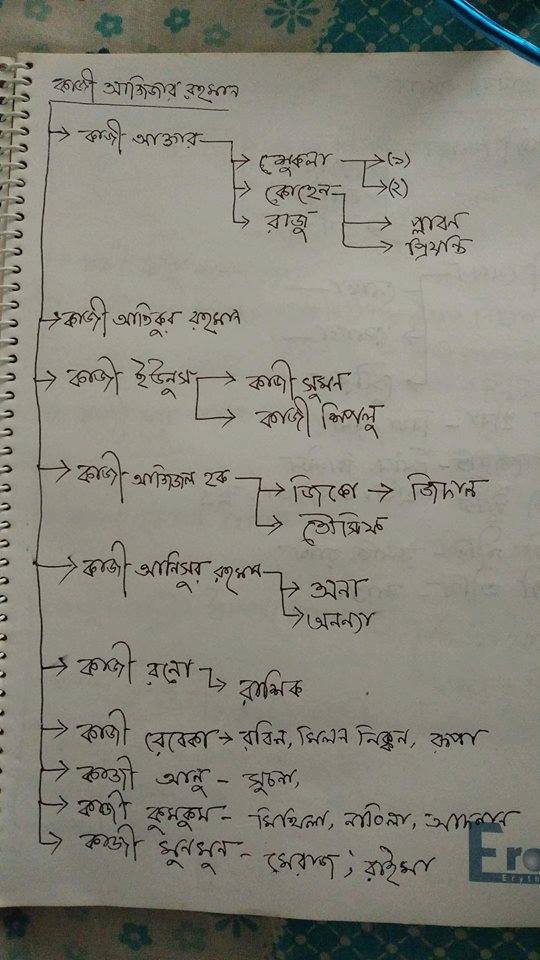 কাজী আজিজার রহমান
→ কাজী আক্তার
→ শুকলা → (১)
→ (২)
→ কোহেন
→ রাজু → প্লাবন
→ প্রিয়ন্তি
→ কাজী আতিকুর রহমান
→ কাজী ইউনুস → কাজী সুমন
→ কাজী শিপলু
→ কাজী আজিজুল হক → জিকো → জিদান
→ তৌসিফ
→ কাজী আনিসুর রহমান → অনা
→ অনন্যা
→ কাজী রনো → রাশিক
→ কাজী রেবেকা → রবিন, মিলন, রূপা
→ কাজী আনু - সূচনা,
→ কাজী কুমকুম - মিথিলা, আদনান
→ কাজী মুনমুন - মেরাজ; রাইমা
Ero
Eryth